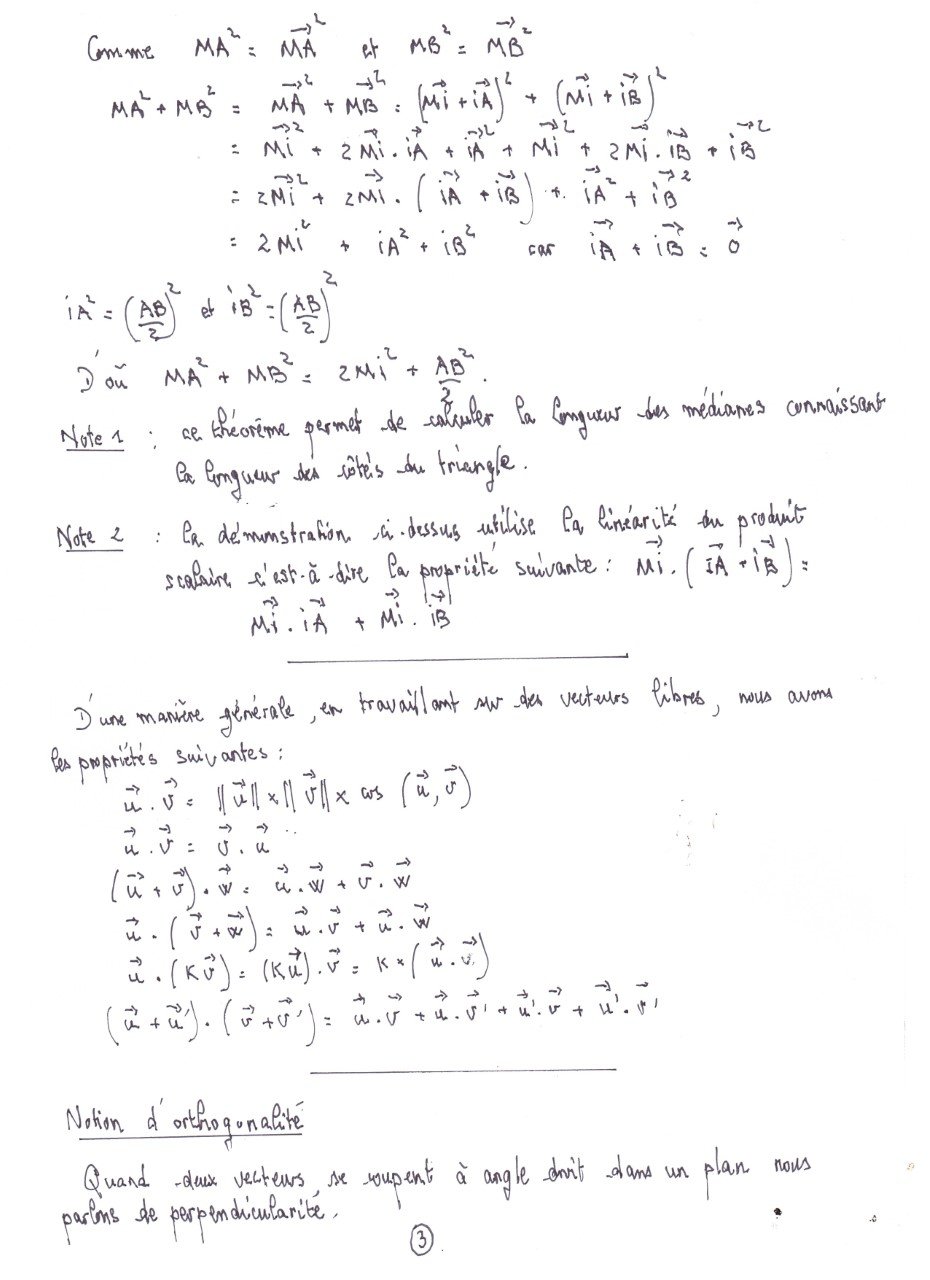 Comme MA² = $\vec{MA}^2$ et MB² = $\vec{MB}^2$
MA² + MB² = $\vec{MA}^2 + \vec{MB}^2 = (\vec{Mi} + \vec{iA})^2 + (\vec{Mi} + \vec{iB})^2$
= $\vec{Mi}^2 + 2\vec{Mi} . \vec{iA} + \vec{iA}^2 + \vec{Mi}^2 + 2\vec{Mi} . \vec{iB} + \vec{iB}^2$
= $2\vec{Mi}^2 + 2\vec{Mi} . (\vec{iA} + \vec{iB}) + \vec{iA}^2 + \vec{iB}^2$
= 2Mi² + iA² + iB² car $\vec{iA} + \vec{iB} = \vec{0}$
iA² = $(\frac{AB}{2})^2$ et iB² = $(\frac{AB}{2})^2$
D'où MA² + MB² = 2Mi² + $\frac{AB^2}{2}$.
Note 1 : ce théorème permet de calculer la longueur des médianes connaissant
la longueur des côtés du triangle.
Note 2 : la démonstration ci-dessus utilise la linéarité du produit
scalaire c'est-à-dire la propriété suivante : $\vec{Mi} . (\vec{iA} + \vec{iB}) =$
$\vec{Mi} . \vec{iA} + \vec{Mi} . \vec{iB}$
D'une manière générale, en travaillant sur des vecteurs libres, nous avons
les propriétés suivantes :
$\vec{u} . \vec{v} = ||\vec{u}|| × ||\vec{v}|| × cos (\vec{u}, \vec{v})$
$\vec{u} . \vec{v} = \vec{v} . \vec{u}$
$(\vec{u} + \vec{v}) . \vec{w} = \vec{u} . \vec{w} + \vec{v} . \vec{w}$
$\vec{u} . (\vec{v} + \vec{w}) = \vec{u} . \vec{v} + \vec{u} . \vec{w}$
$\vec{u} . (K\vec{v}) = (K\vec{u}) . \vec{v} = K × (\vec{u} . \vec{v})$
$(\vec{u} + \vec{u}') . (\vec{v} + \vec{v}') = \vec{u} . \vec{v} + \vec{u} . \vec{v}' + \vec{u}' . \vec{v} + \vec{u}' . \vec{v}'$
Notion d'orthogonalité
Quand deux vecteurs se coupent à angle droit dans un plan nous
parlons de perpendicularité.
3